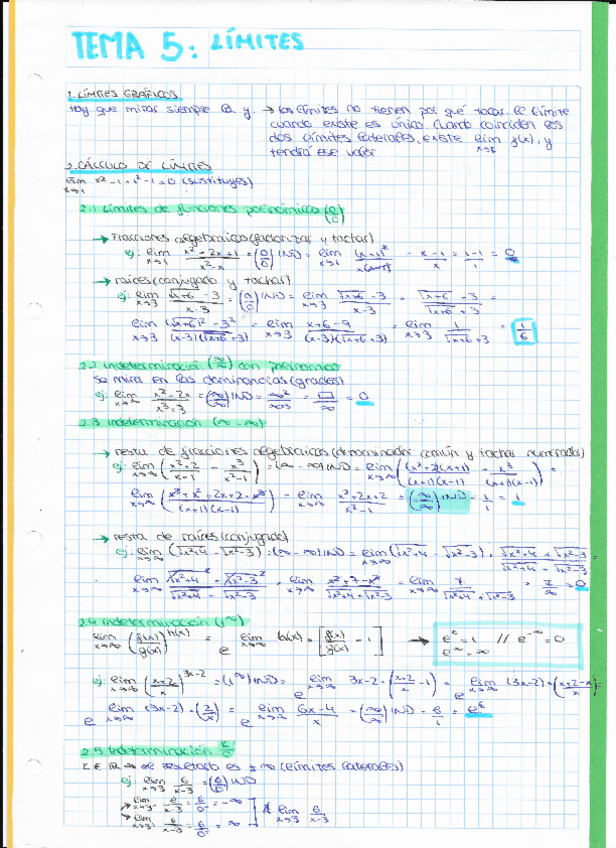 TEMA 5: LÍMITES
1. LÍMITES GRÁFICOS
Hay que mirar siempre la y. → los límites no tienen por qué tocar. El límite
cuando existe es único. Cuando coinciden los
dos límites laterales, existe lim f(x), y
x→6
tendrá ese valor
2. CÁLCULO DE LÍMITES
lim x²-1 = 1²-1 = 0 (sustituyes)
x→1
2.1 Límites de funciones polinómicas (0/0)
→ Fracciones algebraicas (factorizar y tachar)
ej: lim x→1 (x²-2x+1)/(x²-x) = (0/0) IND = lim x→1 (x-1)²/x(x-1) = (x-1)/x = (1-1)/1 = 0
→ raíces (conjugado y tachar)
ej: lim x→3 (√x+6 - 3)/(x-3) = (0/0) IND = lim x→3 (√x+6 - 3)/(x-3) · (√x+6 - 3)/(√x+6 + 3) =
lim x→3 ((√x+6)² - 3²)/((x-3)(√x+6 +3)) = lim x→3 (x+6-9)/((x-3)(√x+6 +3)) = lim x→3 1/(√x+6 +3) = 1/6
2.2 Indeterminación (∞/∞) con polinomios
Se mira en las dominancias (grados)
ej: lim x→∞ (x²-2x)/(x³-3) = (∞/∞) IND = ∞²/∞³ = □/∞ = 0
2.3 Indeterminación (∞-∞)
→ resta de fracciones algebraicas (denominador común y tachas numerador)
ej: lim x→∞ ((x²+2)/(x-1) - x³/(x²-1)) = (∞-∞) IND = lim x→∞ ((x²+2)(x+1)/(x+1)(x-1) - x³/(x+1)(x-1)) =
lim x→∞ ((x³+x²+2x+2-x³)/((x+1)(x-1))) = lim x→∞ (x²+2x+2)/(x²-1) = (∞/∞) IND = 1/1 = 1
→ resta de raíces (conjugado)
ej: lim x→∞ (√x²+4 - √x²-3) = (∞-∞) IND = lim x→∞ (√x²+4 - √x²-3) · (√x²+4 + √x²-3)/(√x²+4 - √x²-3) =
lim x→∞ (√x²+4² - √x²-3²)/(√x²+4 - √x²-3) = lim x→∞ (x²+7-x²)/(√x²+4 + √x²-3) = lim x→∞ 7/(√x²+4 + √x²-3) = 7/∞ = 0
2.4 Indeterminación (1^∞)
lim x→∞ (f(x)/g(x))^h(x) = e^ lim x→∞ h(x) · [f(x)/g(x) - 1] → e⁰=1 // e^-∞=0
e^∞=∞
ej: lim x→∞ ((x+2)/x)^3x-2 = (1^∞) IND = e^ lim x→∞ 3x-2 · ((x+2)/x - 1) = e^ lim x→∞ (3x-2) · ((x+2-x)/x) =
e^ lim x→∞ (3x-2) · (2/x) = e^ lim x→∞ (6x-4)/x = (∞/∞) IND = 6/1 = e⁶
2.5 Indeterminación k/0
k ∈ ℝ → el resultado es ±∞ (límites laterales)
ej: lim x→3 6/(x-3) = (6/0) IND
→ lim x→3⁻ 6/(x-3) = 6/0⁻ = -∞
→ lim x→3⁺ 6/(x-3) = 6/0⁺ = ∞ ] ∄ lim x→3 6/(x-3)